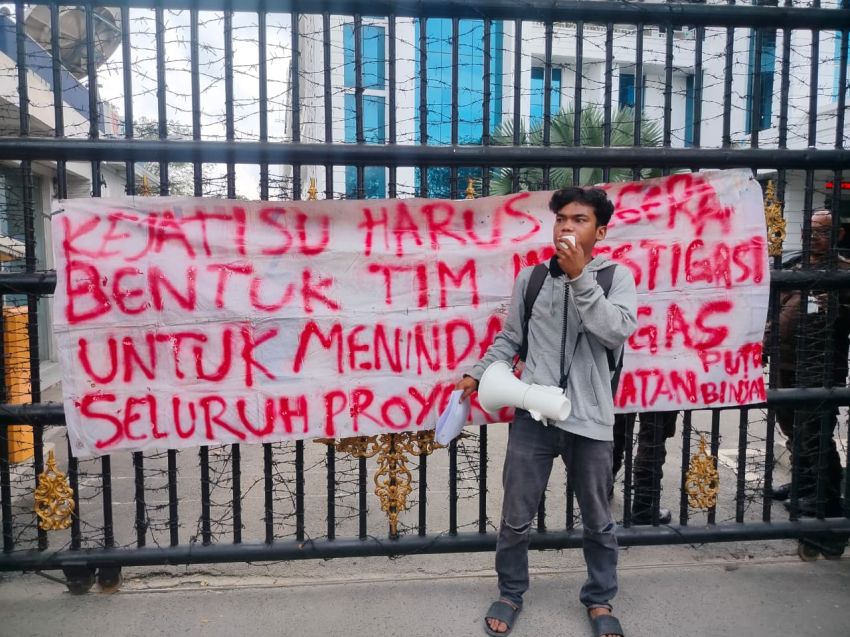 KEJATISU HARUS SEGERA
BENTUK TIM INVESTIGASI
UNTUK MENINDAK TEGAS
SELURUH PROYEK
PUTR
BINJAI